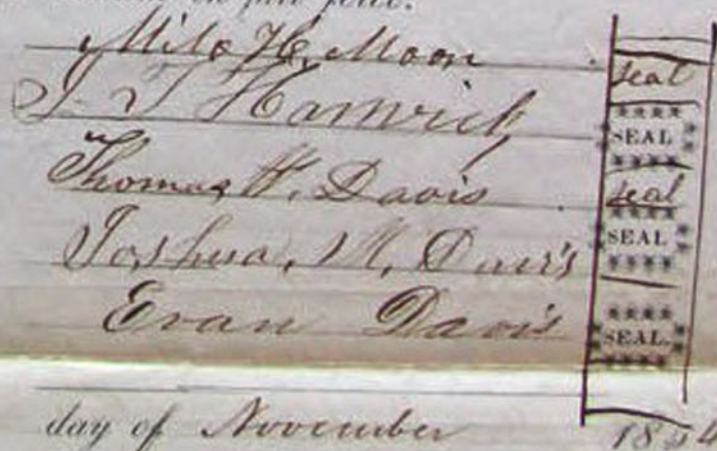 Milo H. Moon seal
J T Hamrick SEAL
Thomas H. Davis seal
Joshua M. Davis SEAL
Evan Davis SEAL.
day of November